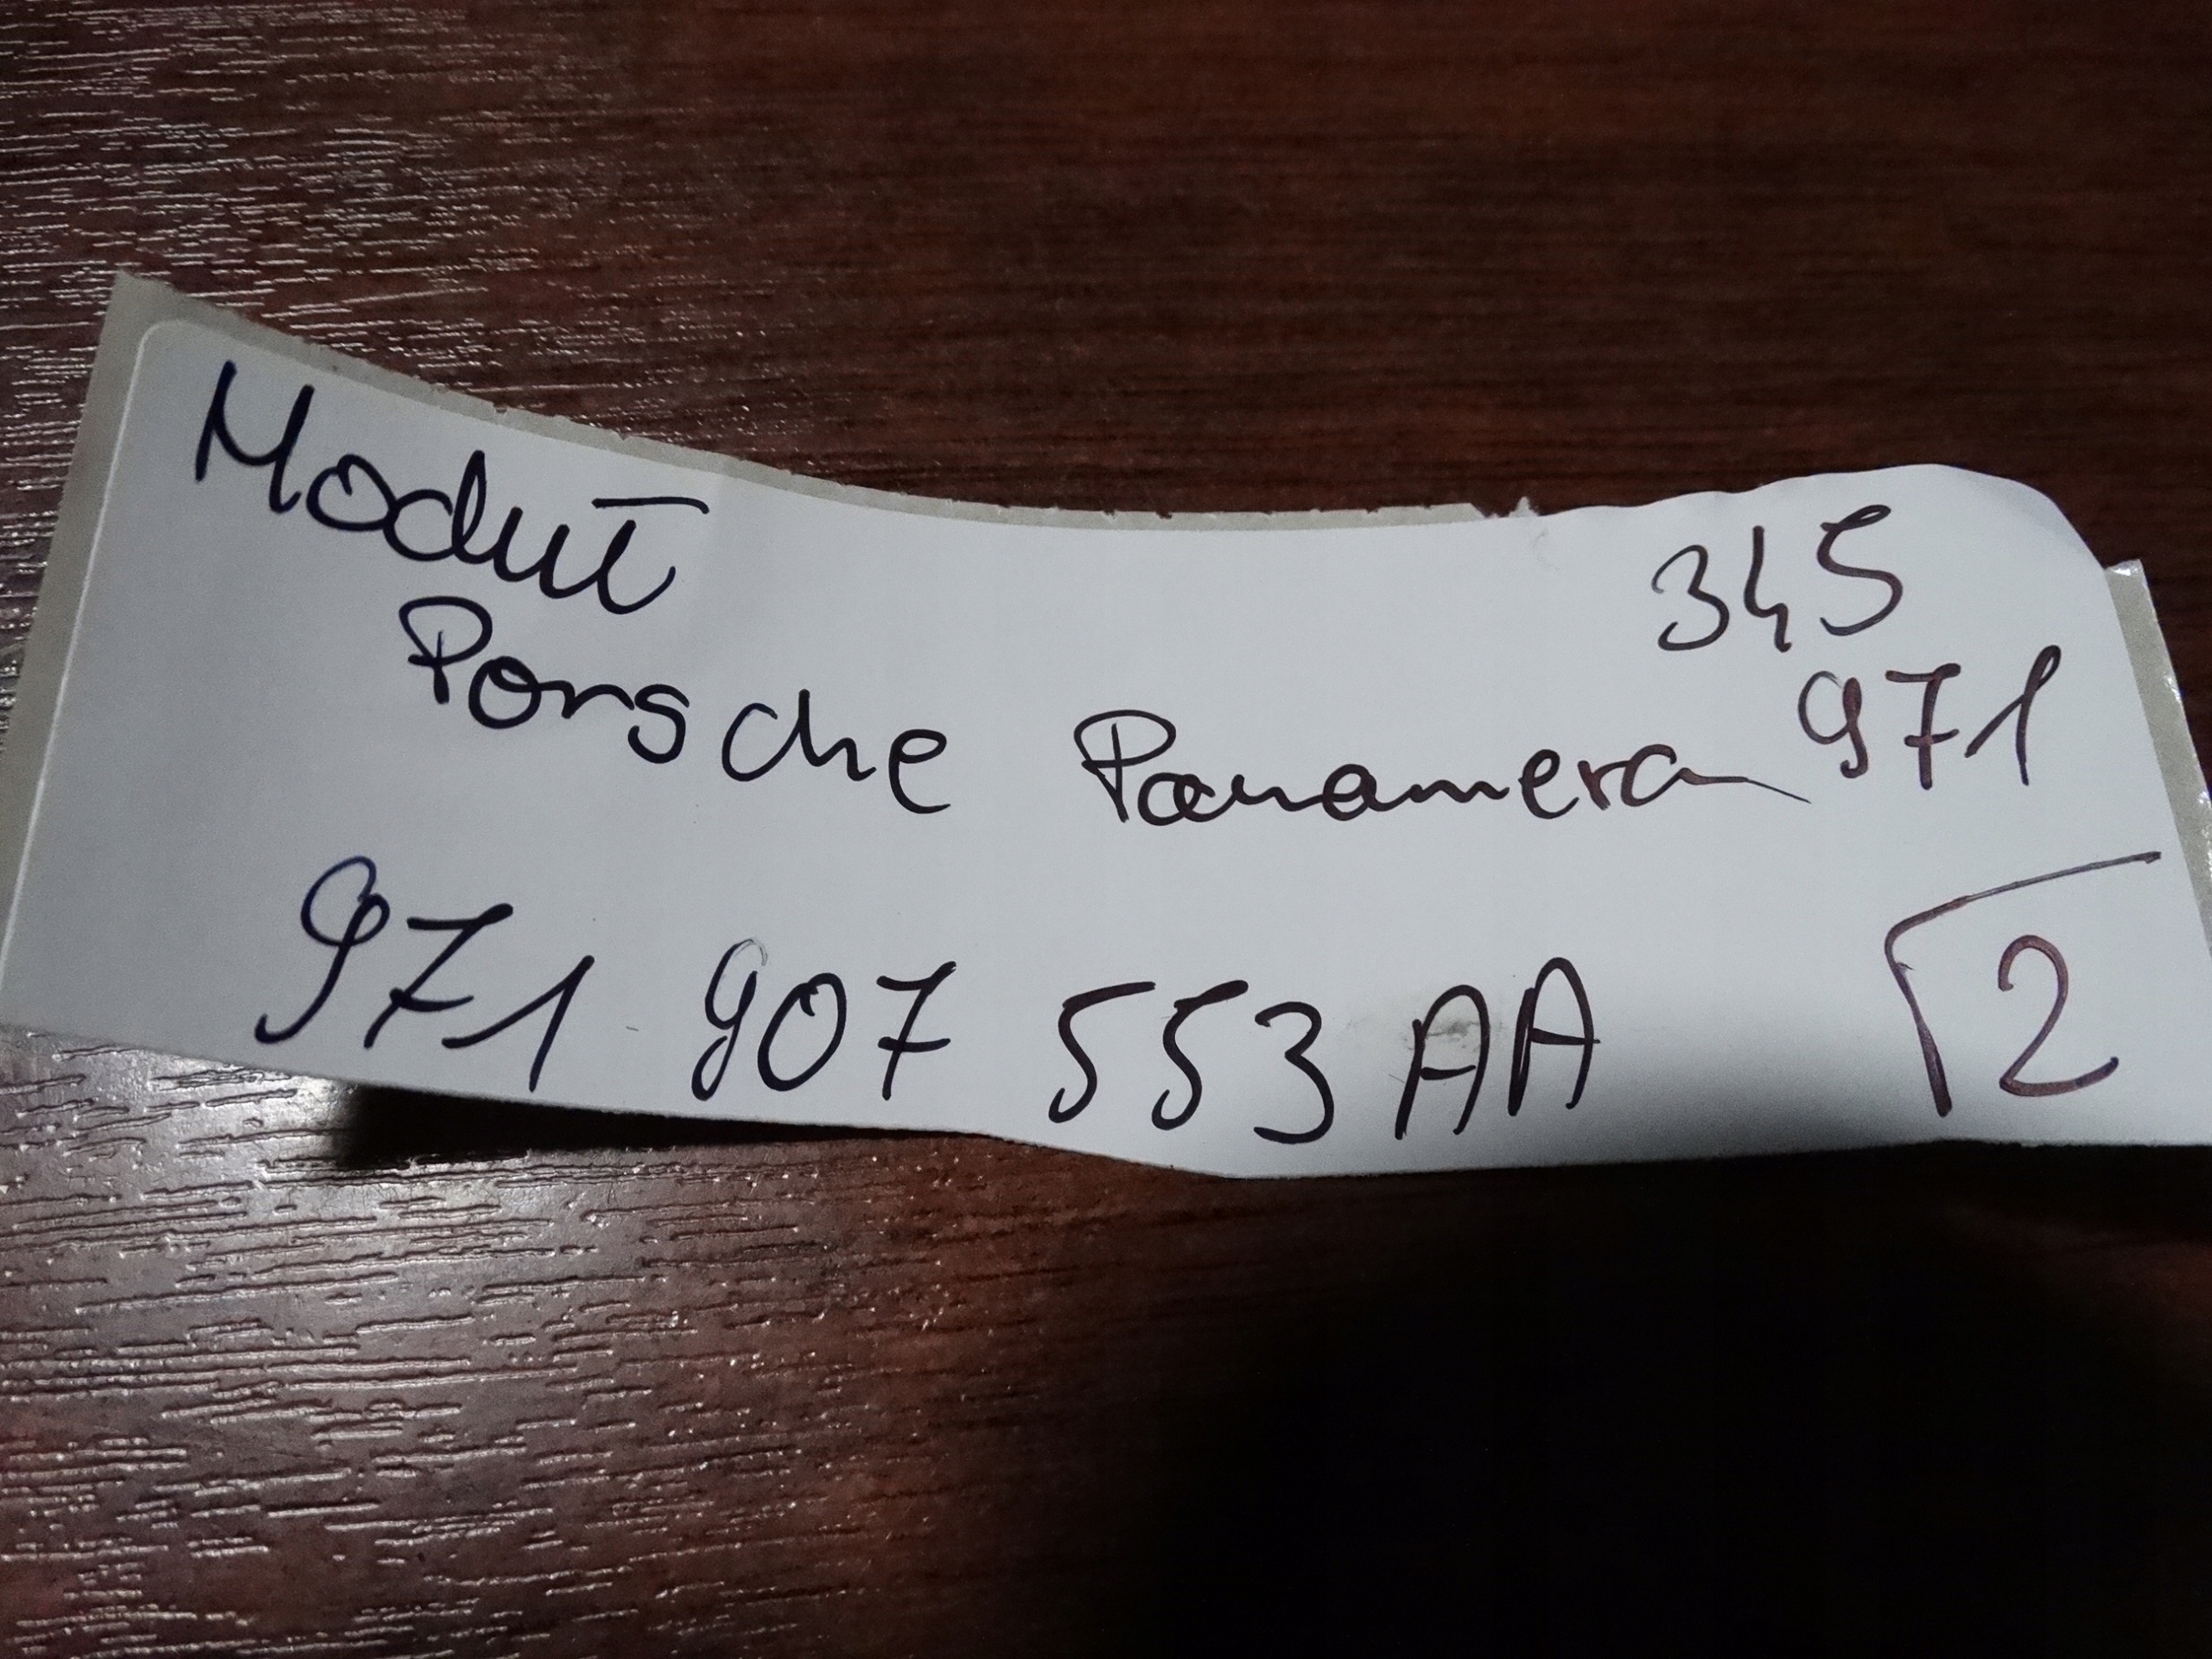 Moduł
345
Porsche Panamera 971
971 907 553 AA
2